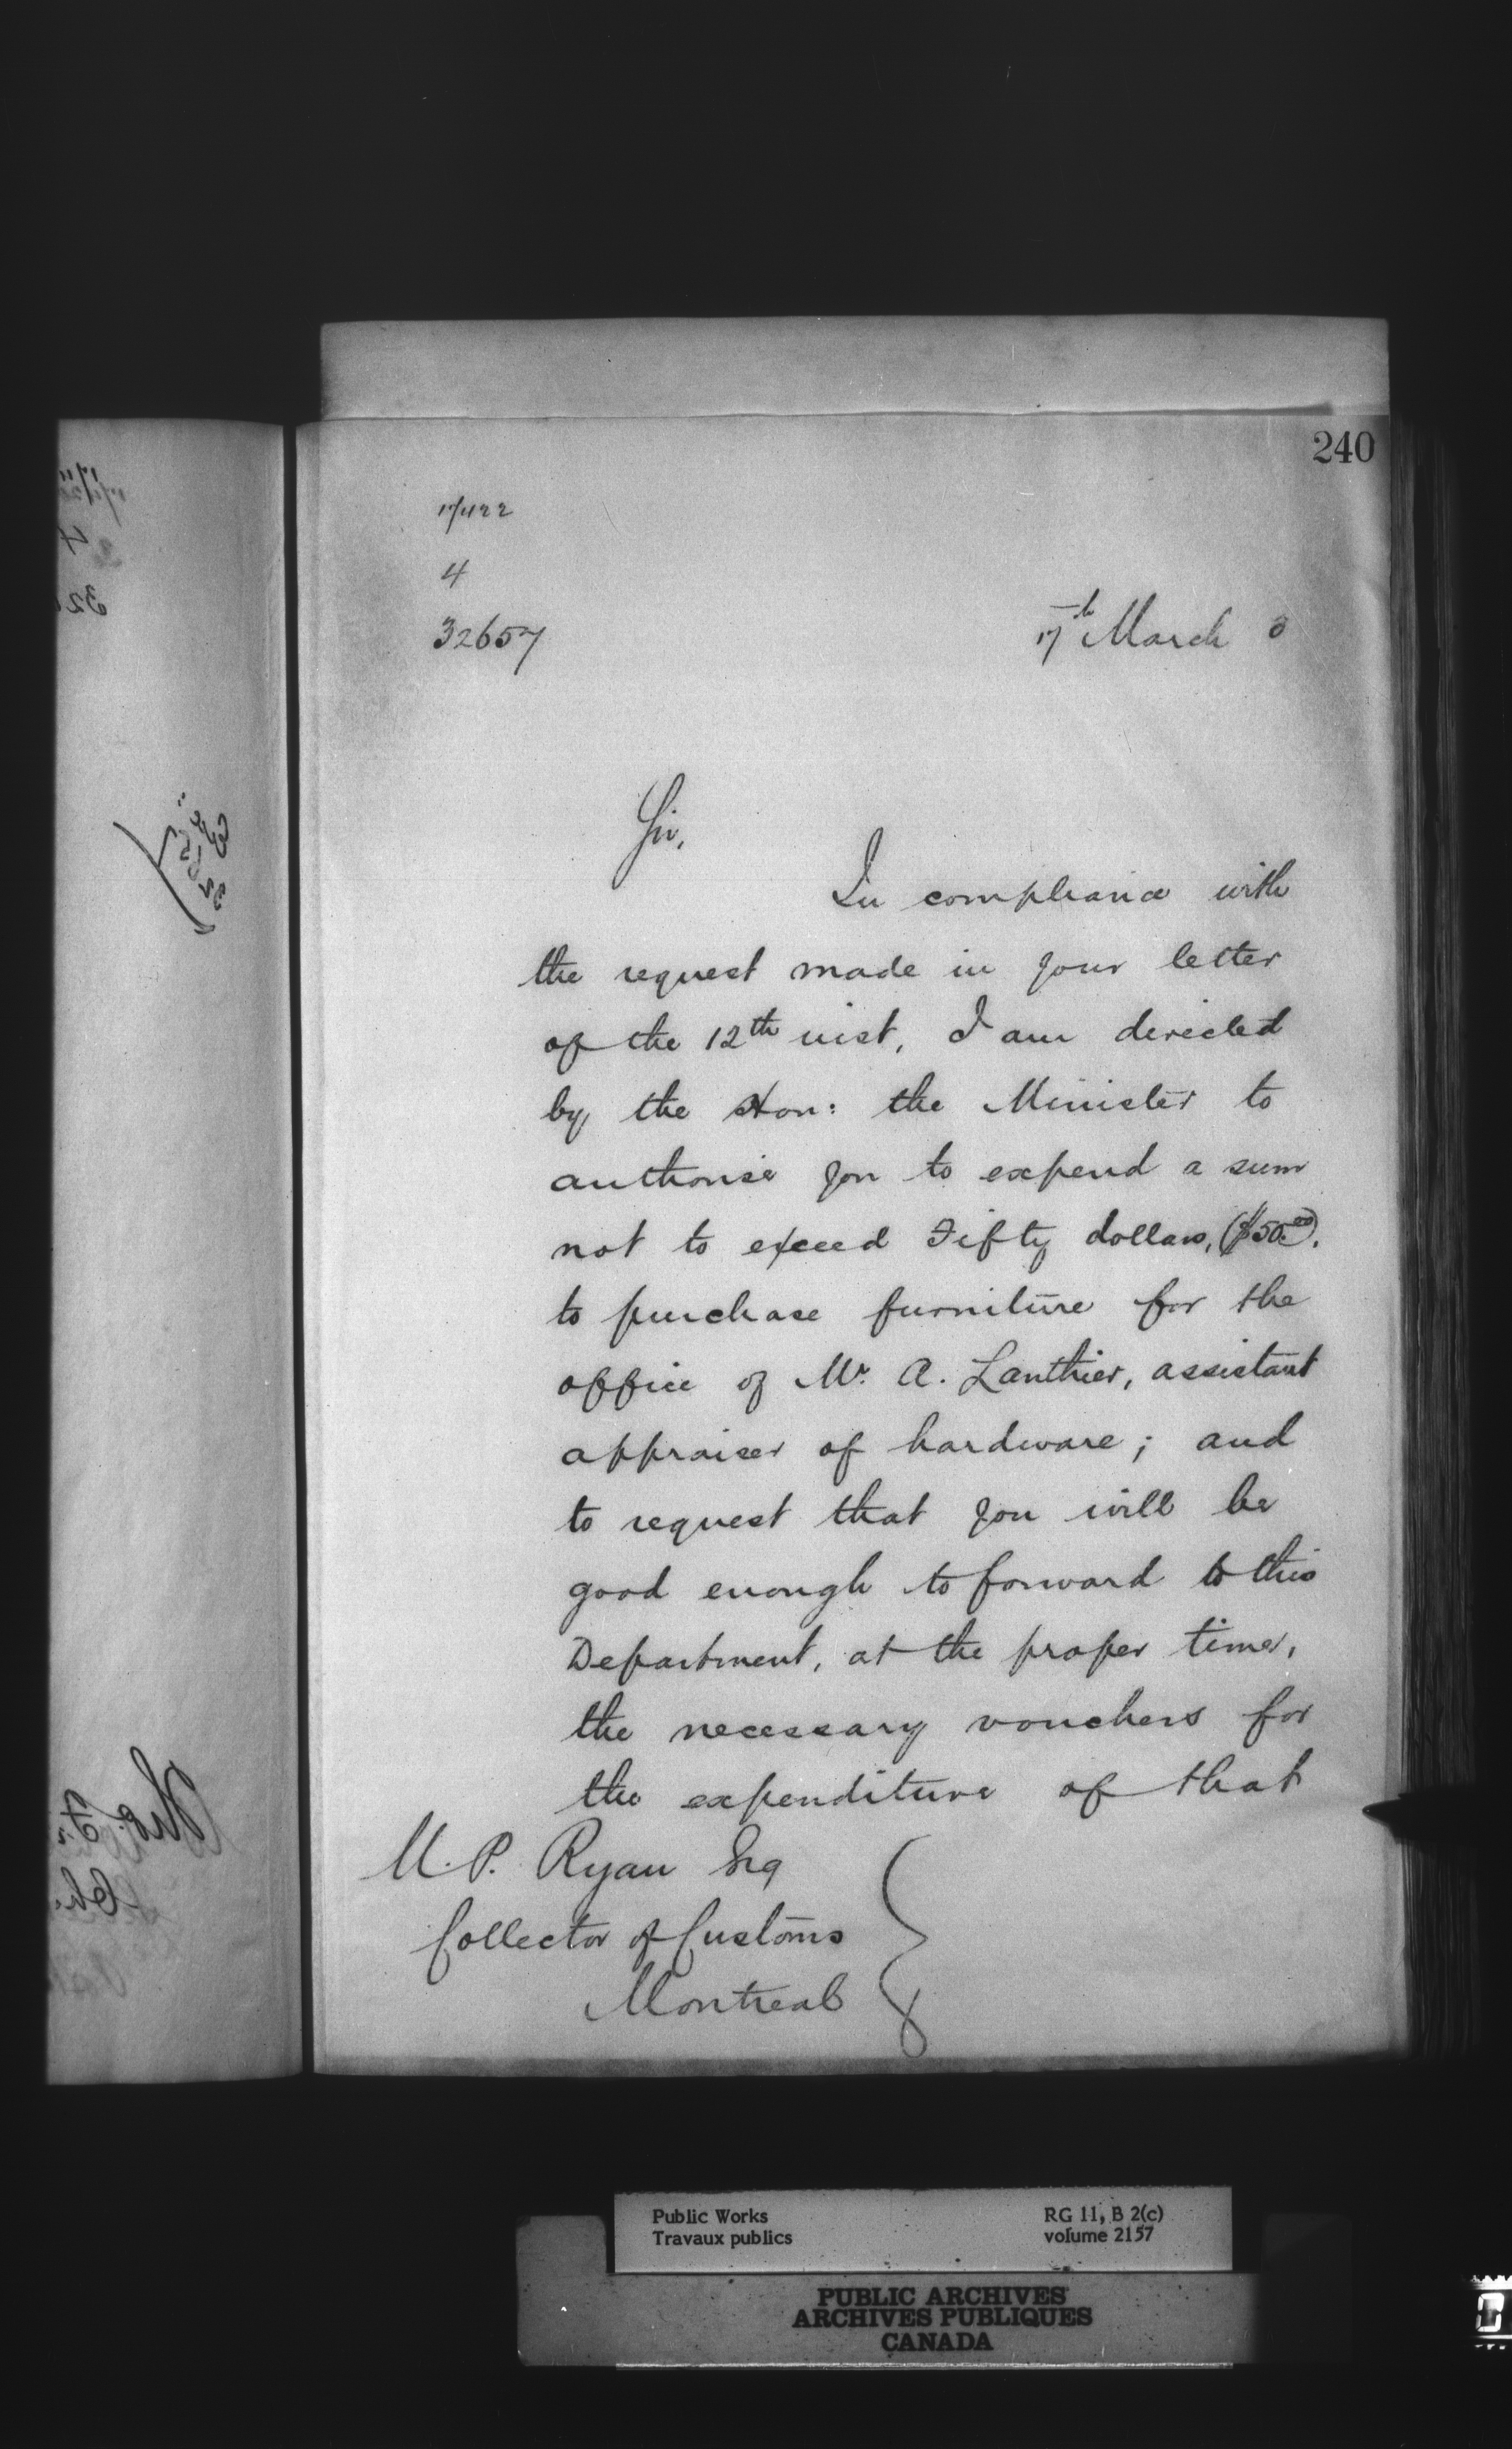 240
17422
4
32657
17th March 3
Sir,
In compliance with
the request made in your letter
of the 12th inst, I am directed
by the Hon: the Minister to
authorise you to expend a sum
not to exceed Fifty dollars, ($50.00).
to purchase furniture for the
office of Mr. A. Lanthier, assistant
appraiser of hardware; and
to request that you will be
good enough to forward to this
Department, at the proper time,
the necessary vouchers for
the expenditure of that
M. P. Ryan Esq
Collector of Customs
Montreal
Public Works
Travaux publics
RG 11, B 2(c)
volume 2157
PUBLIC ARCHIVES
ARCHIVES PUBLIQUES
CANADA